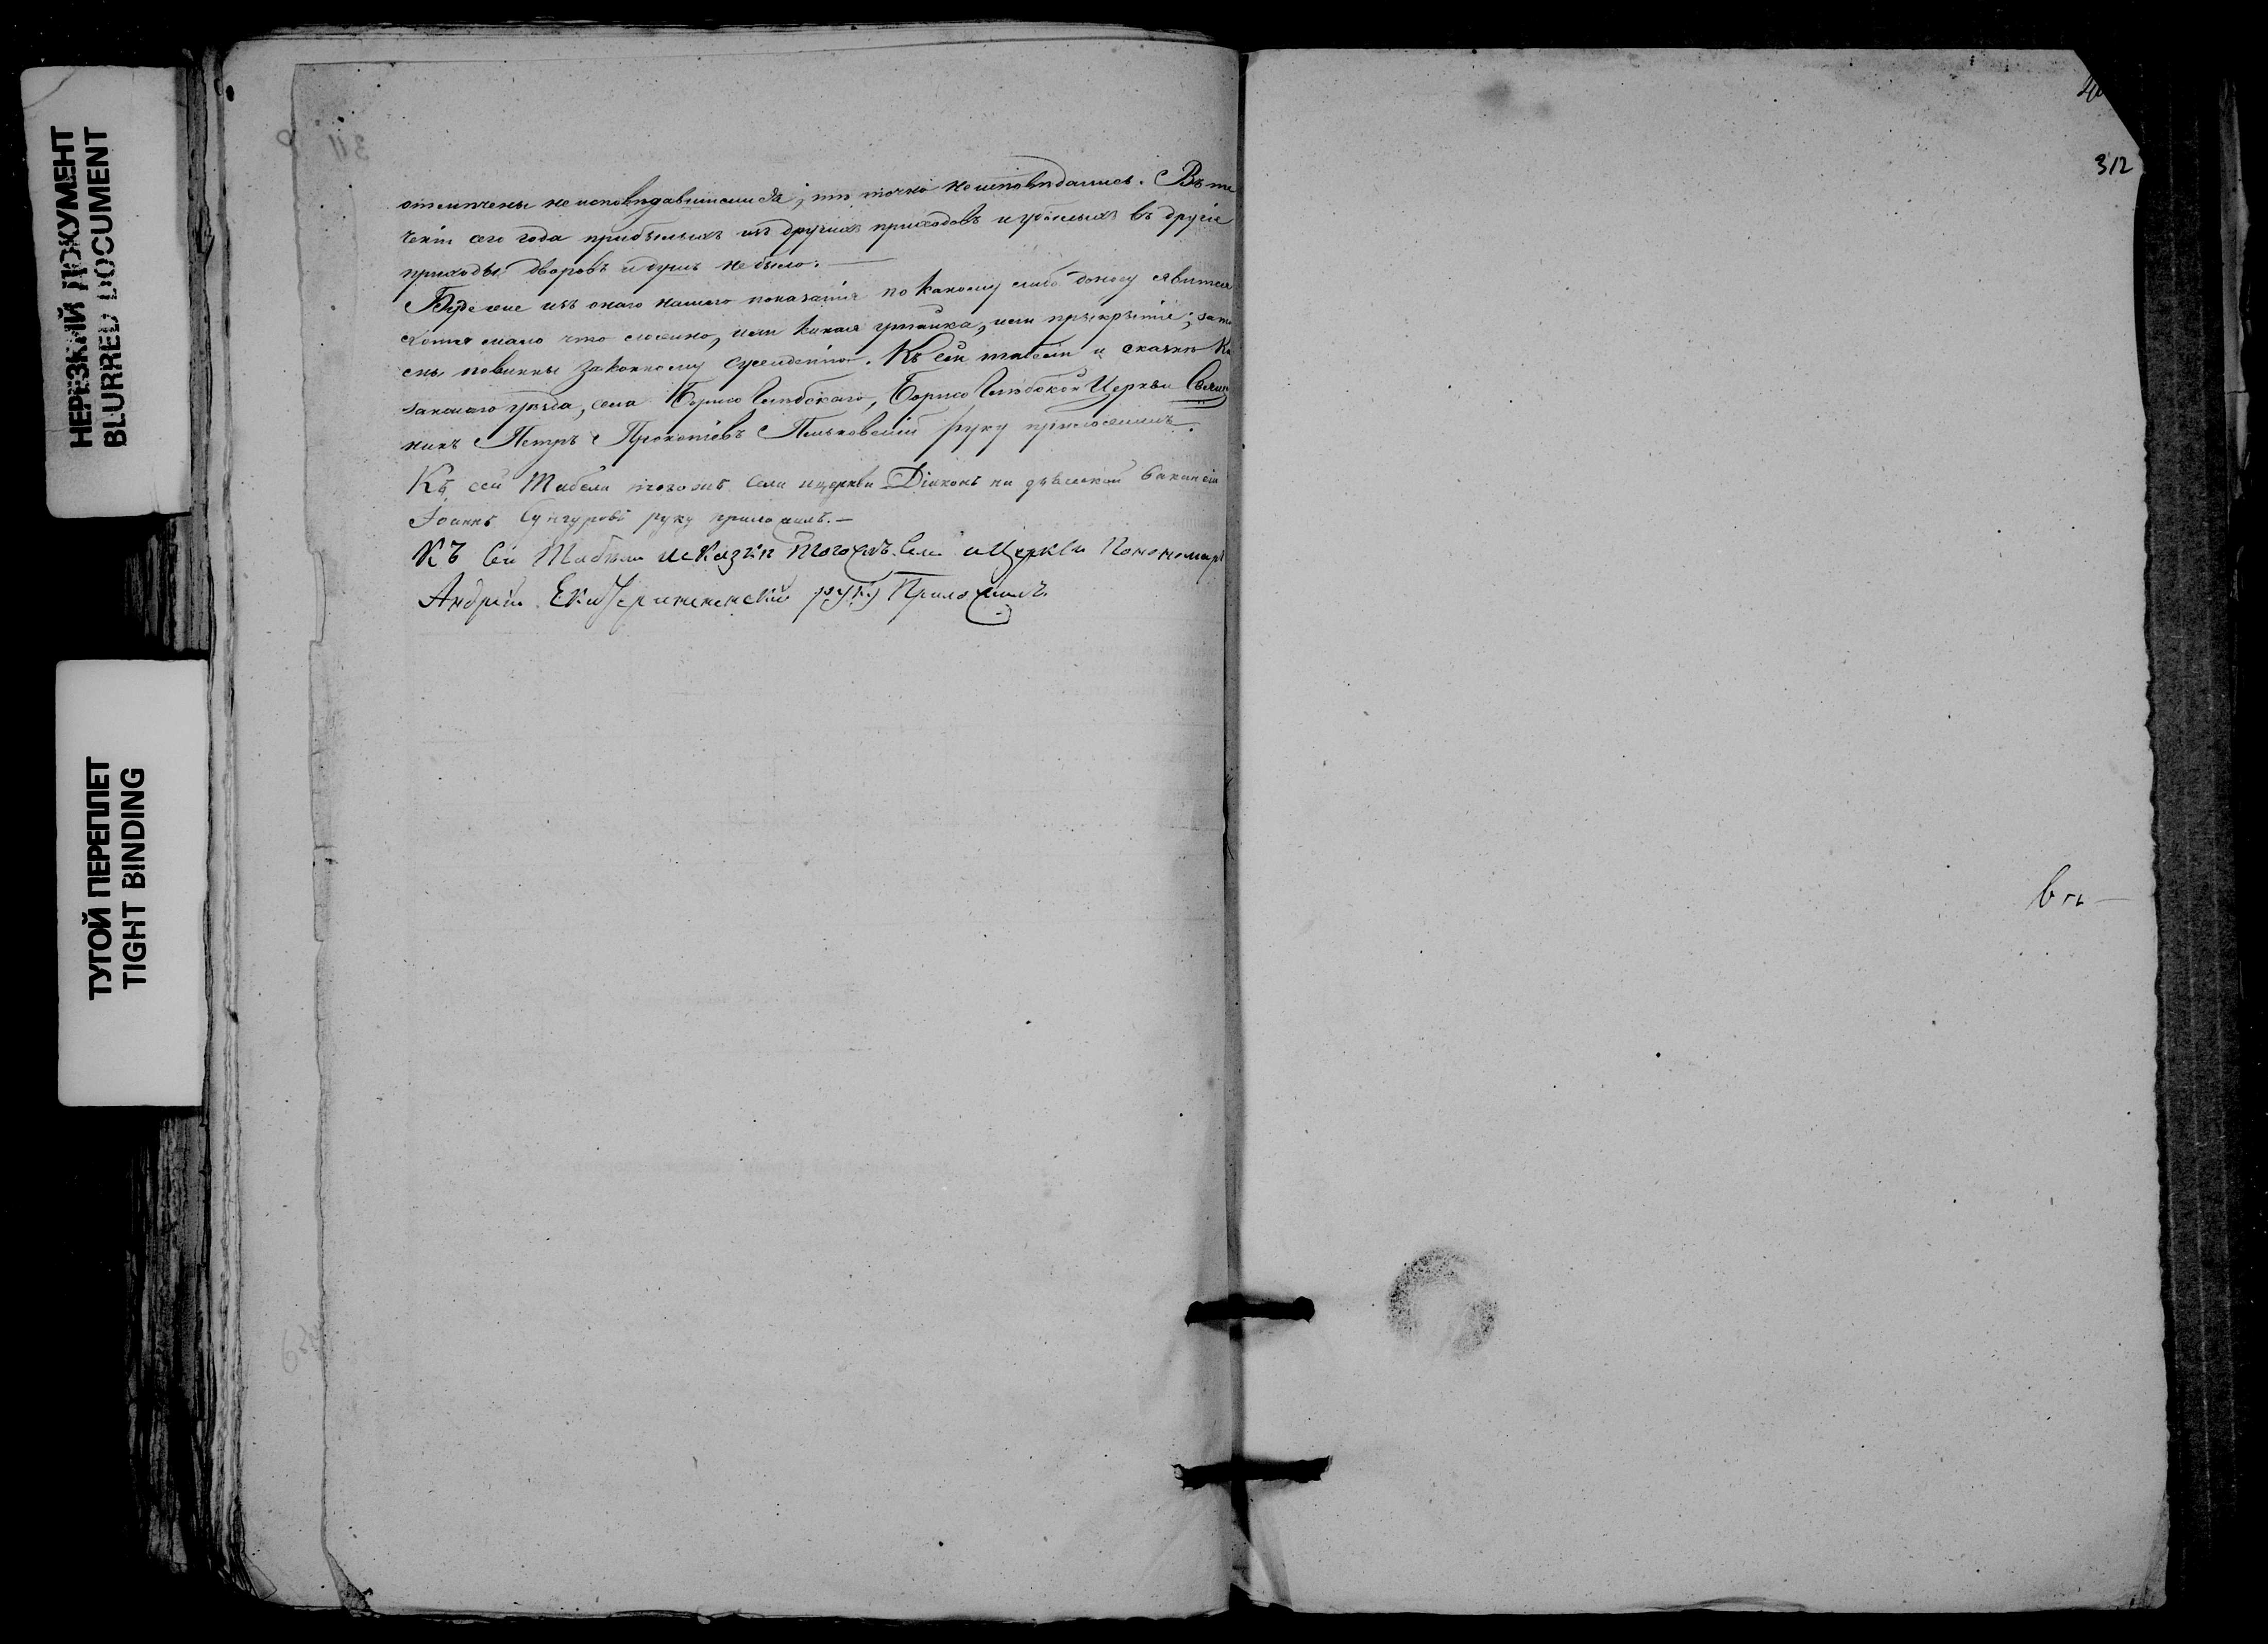 НЕРЕЗКИЙ ДОКУМЕНТ
BLURRED DOCUMENT
ТУГОЙ ПЕРЕПЛЕТ
TIGHT BINDING
отмѣчены неисповѣдавшимися, тѣ точно неисповѣдались. Въ те
ченіи сего года прибылыхъ изъ другихъ приходовъ и убылыхъ въ другіе
приходы дворовъ и душъ небыло. —
Буде же изъ онаго нашего показанія по какому либо доносу явится
хотя мало что ложно, или какая утайка, или прикрытіе; за то
мы повинны законному сужденію. Къ сей табели и сказкѣ Ка
занскаго уѣзда, села Борисоглѣбскаго, Борисоглѣбской Церкви Священ
никъ Петръ Прокопіевъ руку приложилъ.
Къ сей Табели тогожъ села и церкви Діаконъ на дьяческой вакансіи
Іоаннъ Сунгуровъ руку приложилъ. —
Къ сей Табели и сказки Тогожъ Села и Церкви Пономарь
Андрей Екатерининскій руку Приложилъ.
312